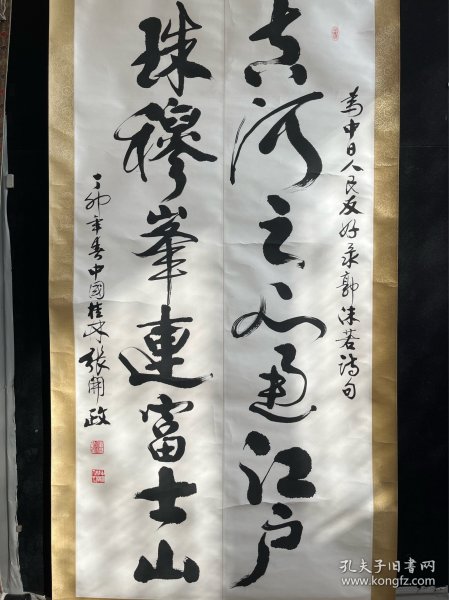 为中日人民友好录郭沫若诗句
黄河之水通江户
珠穆峯連富士山
丁卯年春中國桂林張開政
孔夫子旧书网
www.kongfz.com